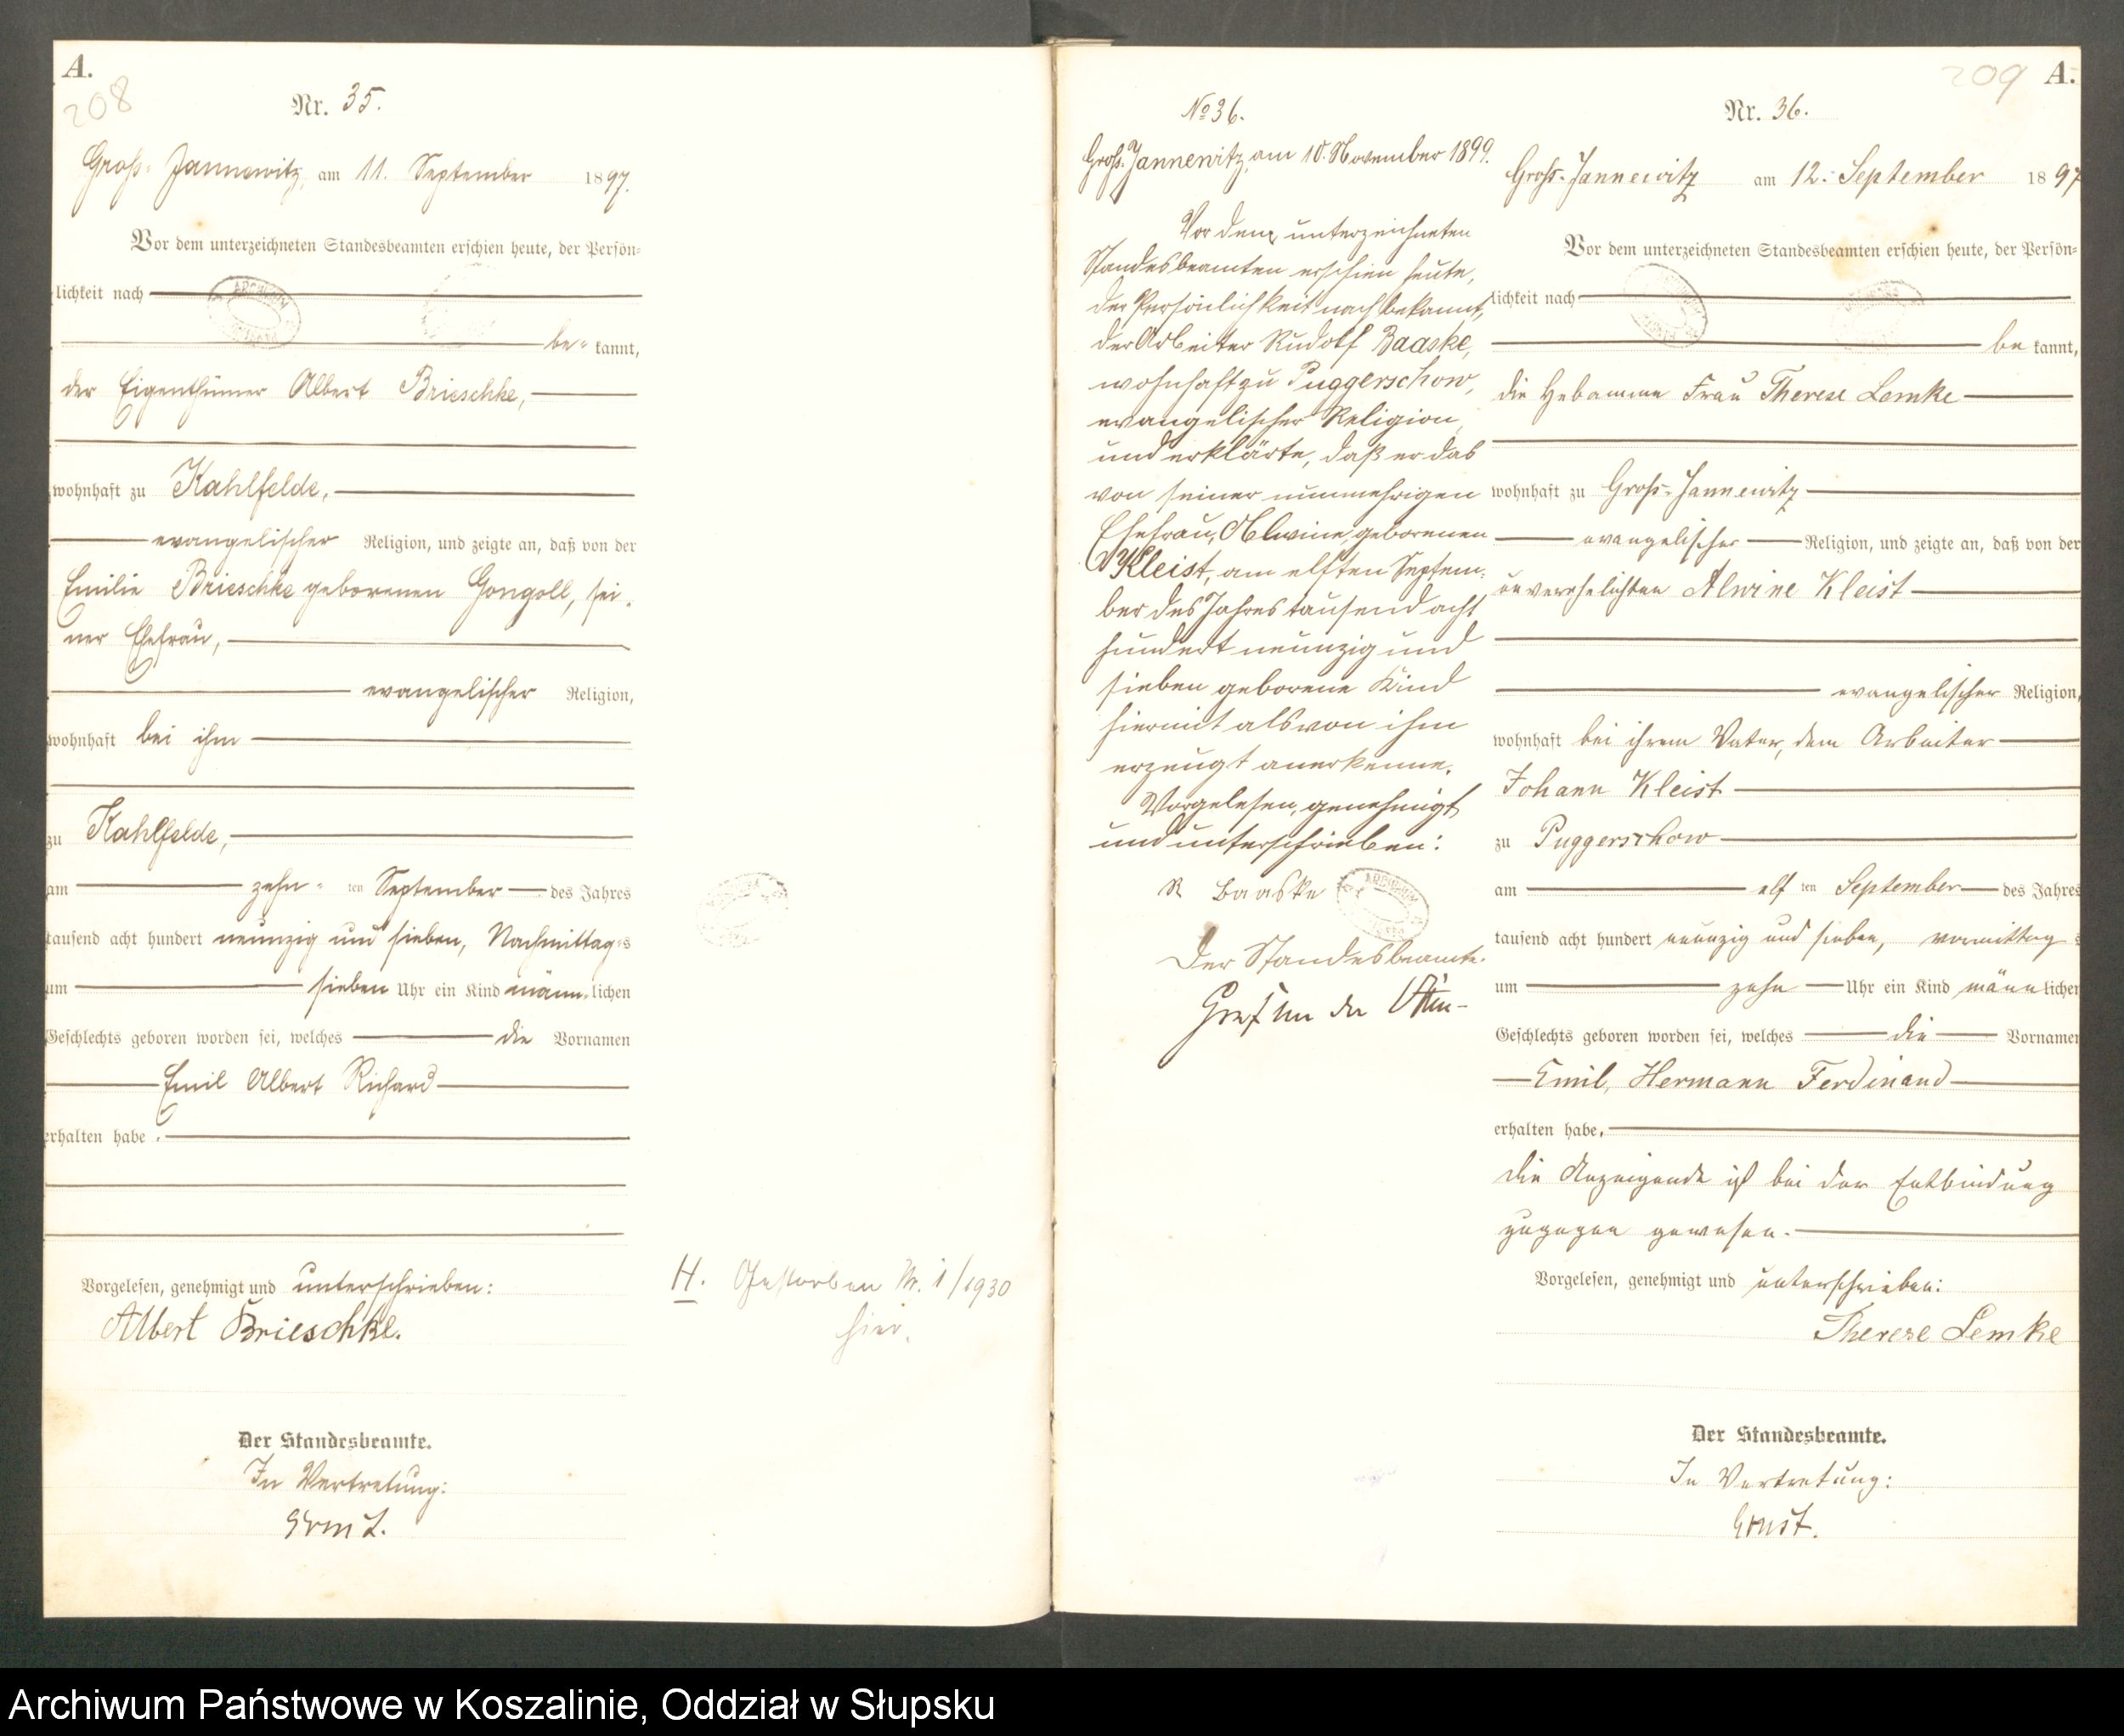 A.
208
Nr. 35.
Groß-Jannewitz, am 11. September 1897.
Vor dem unterzeichneten Standesbeamten erschien heute, der Persön=
lichkeit nach
be= kannt,
der Eigenthümer Albert Brieschke,
wohnhaft zu Kahlfelde,
evangelischer Religion, und zeigte an, daß von der
Emilie Brieschke geborenen Gongoll, sei=
ner Ehefrau,
evangelischer Religion,
wohnhaft bei ihm
zu Kahlfelde,
am zehn= ten September des Jahres
tausend acht hundert neunzig und sieben, Nachmittags
um sieben Uhr ein Kind männ=lichen
Geschlechts geboren worden sei, welches die Vornamen
Emil Albert Richard
erhalten habe.
Vorgelesen, genehmigt und unterschrieben:
Albert Brieschke.
Der Standesbeamte.
In Vertretung:
Ernst.
H. Gestorben Nr. 1/1930
hier.
No 36.
Groß-Jannewitz, am 10. November 1899.
Vor dem unterzeichneten
Standesbeamten erschien heute,
der Persönlichkeit nach bekannt,
der Arbeiter Rudolf Baaske,
wohnhaft zu Puggerschow,
evangelischer Religion,
und erklärte, daß er das
von seiner nunmehrigen
Ehefrau, Alwine, geborenen
Kleist, am elften Septem=
ber des Jahres tausend acht
hundert neunzig und
sieben geborene Kind
hiermit als von ihm
erzeugt anerkenne.
Vorgelesen, genehmigt
und unterschrieben:
R Baaske
Der Standesbeamte.
Graf von der
209 A.
Nr. 36.
Groß-Jannewitz am 12. September 1897
Vor dem unterzeichneten Standesbeamten erschien heute, der Persön=
lichkeit nach
be kannt,
die Hebamme Frau Therese Lemke
wohnhaft zu Groß-Jannewitz
evangelischer Religion, und zeigte an, daß von der
unverehelichten Alwine Kleist
evangelischer Religion,
wohnhaft bei ihrem Vater, dem Arbeiter
Johann Kleist
zu Puggerschow
am elf ten September des Jahres
tausend acht hundert neunzig und sieben, vormittags
um zehn Uhr ein Kind männlichen
Geschlechts geboren worden sei, welches die Vornamen
Emil, Hermann Ferdinand
erhalten habe.
Die Anzeigende ist bei der Entbindung
zugegen gewesen.
Vorgelesen, genehmigt und unterschrieben:
Therese Lemke
Der Standesbeamte.
In Vertretung:
Ernst.
Archiwum Państwowe w Koszalinie, Oddział w Słupsku